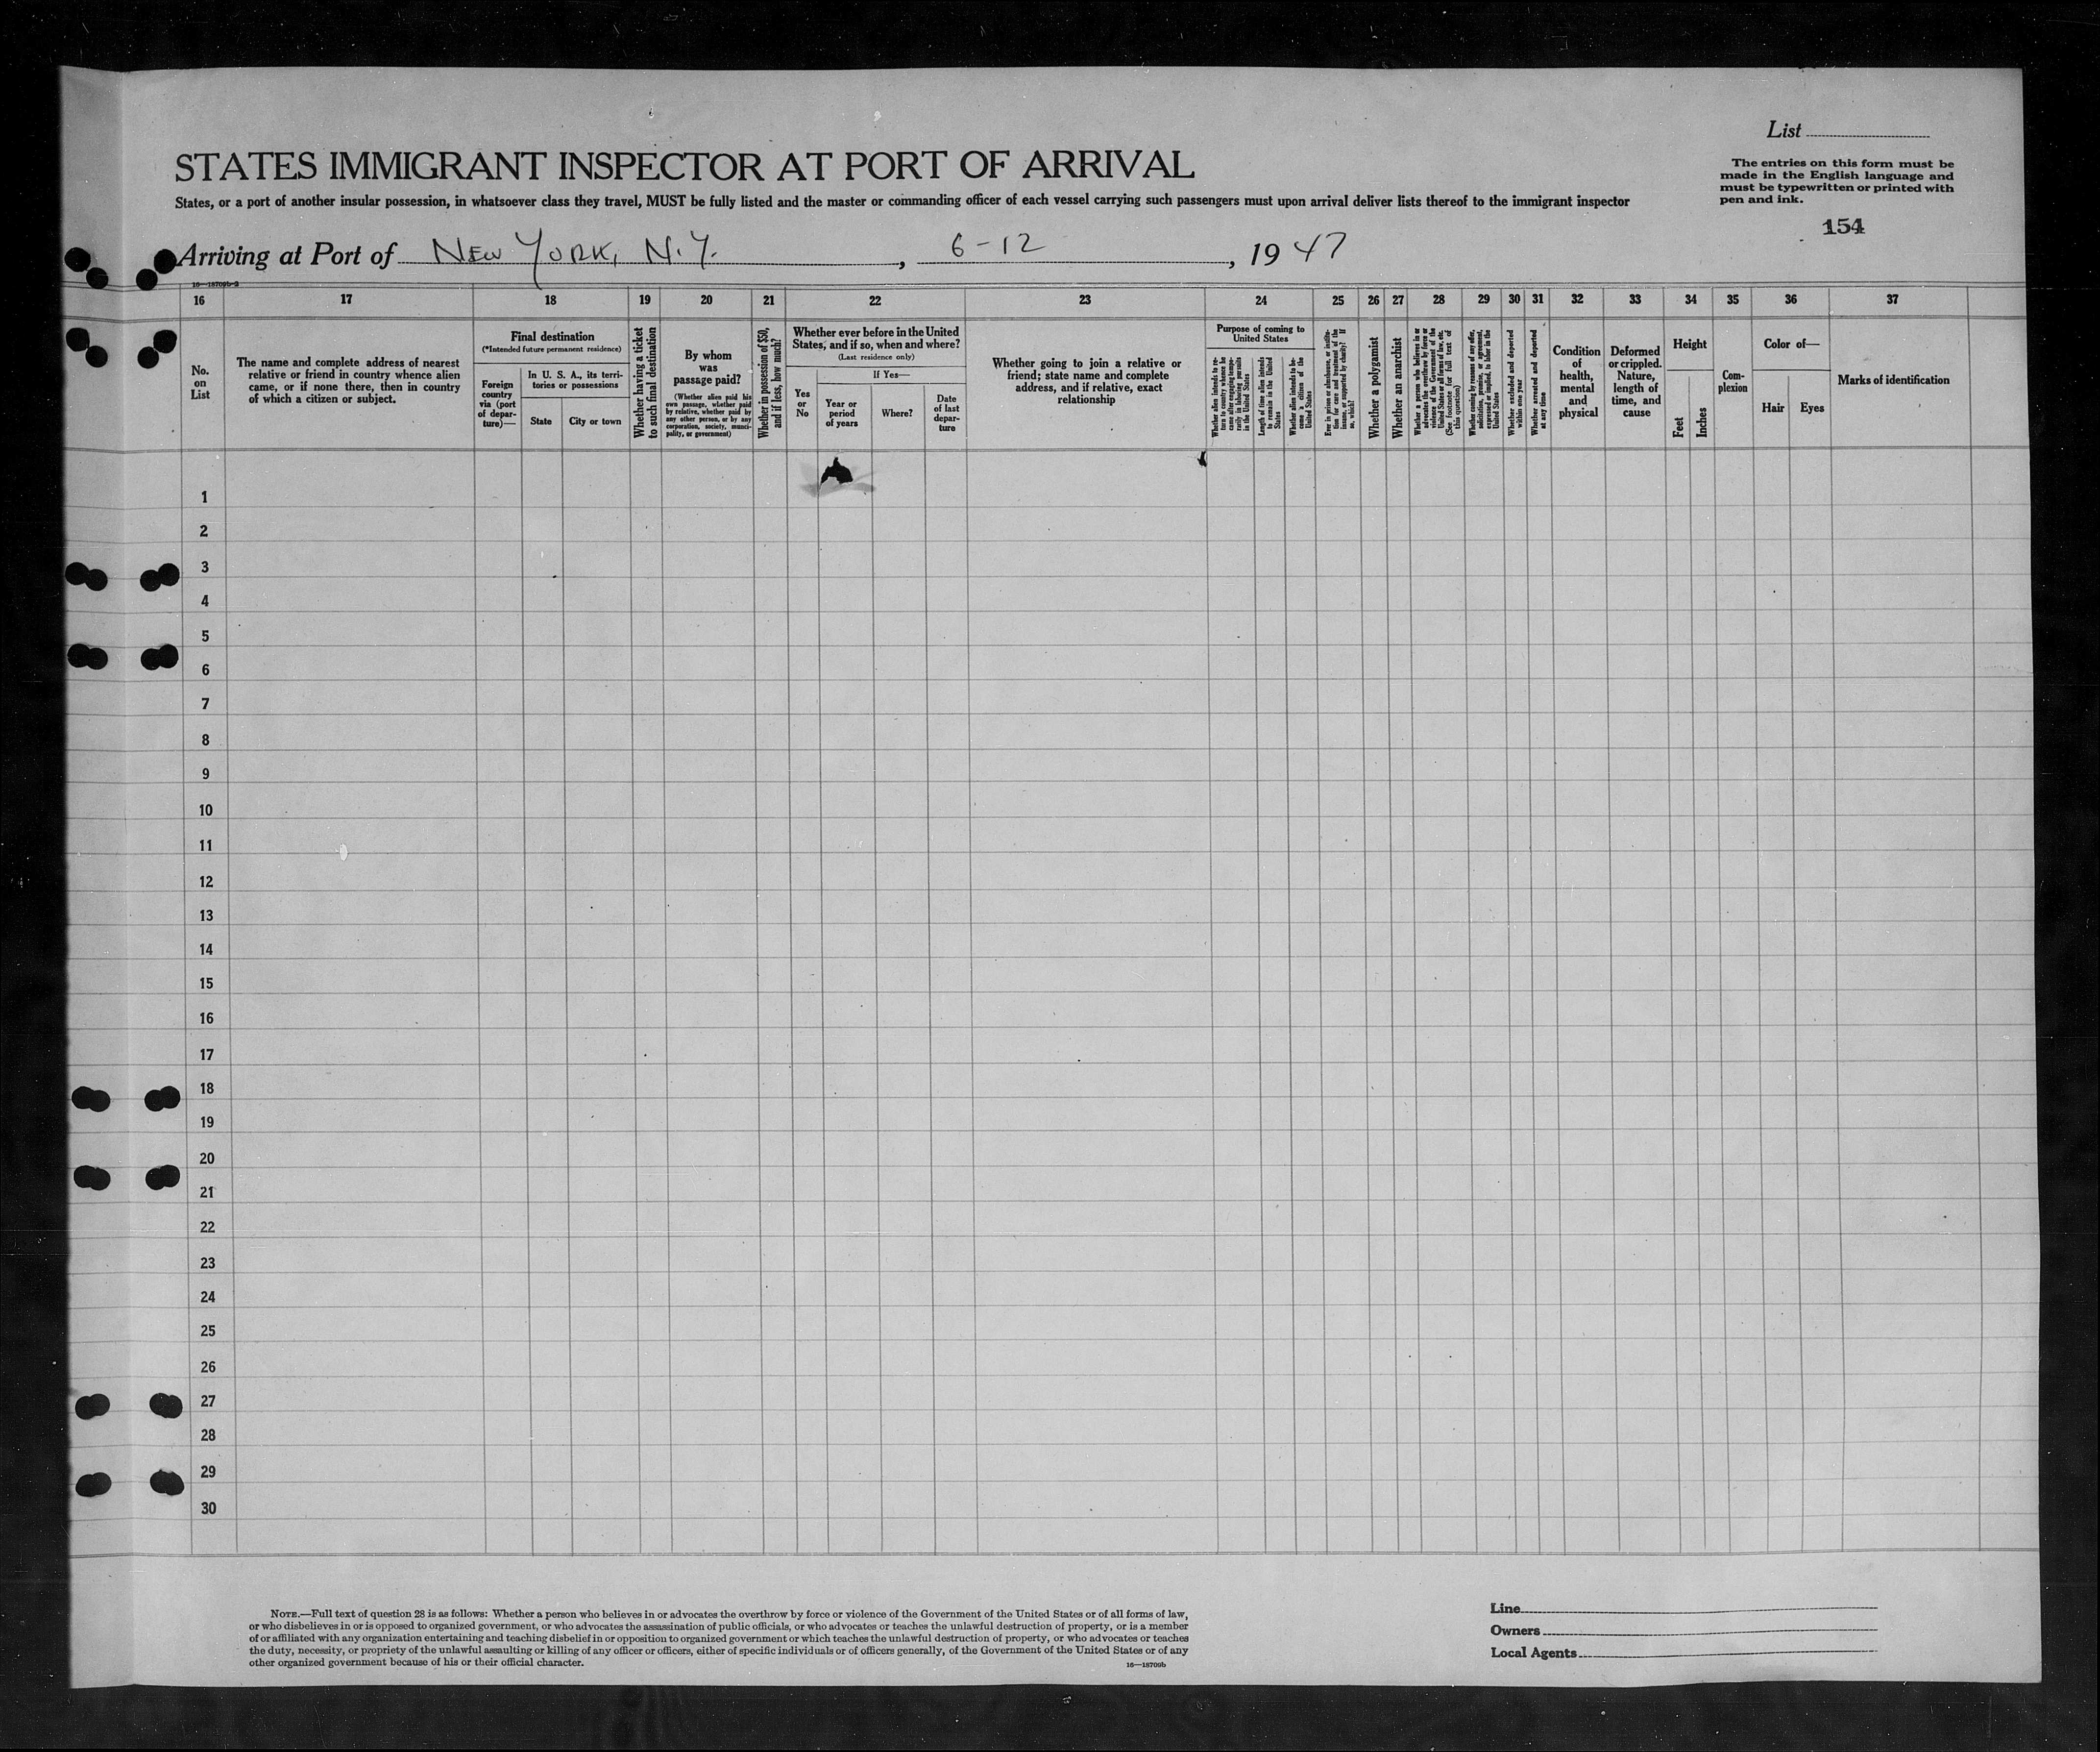 List
STATES IMMIGRANT INSPECTOR AT PORT OF ARRIVAL
The entries on this form must be
made in the English language and
must be typewritten or printed with
pen and ink.
States, or a port of another insular possession, in whatsoever class they travel, MUST be fully listed and the master or commanding officer of each vessel carrying such passengers must upon arrival deliver lists thereof to the immigrant inspector
154
Arriving at Port of NEW YORK, N.Y. , 6-12 , 1947
16—18709b-2
16 17 18 19 20 21 22 23 24 25 26 27 28 29 30 31 32 33 34 35 36 37
No.
on
List
The name and complete address of nearest
relative or friend in country whence alien
came, or if none there, then in country
of which a citizen or subject.
Final destination
(*Intended future permanent residence)
Foreign
country
via (port
of depar-
ture)—
In U. S. A., its terri-
tories or possessions
State
City or town
Whether having a ticket
to such final destination
By whom
was
passage paid?
(Whether alien paid his
own passage, whether paid
by relative, whether paid by
any other person, or by any
corporation, society, munici-
pality, or government)
Whether in possession of $50,
and if less, how much?
Whether ever before in the United
States, and if so, when and where?
(Last residence only)
Yes
or
No
If Yes—
Year or
period
of years
Where?
Date
of last
depar-
ture
Whether going to join a relative or
friend; state name and complete
address, and if relative, exact
relationship
Purpose of coming to
United States
Whether alien intends to re-
turn to country whence he
came after engaging tempo-
rarily in laboring pursuits
in the United States
Length of time alien intends
to remain in the United
States
Whether alien intends to be-
come a citizen of the
United States
Ever in prison or almshouse, or institu-
tion for care and treatment of the
insane, or supported by charity? If
so, which?
Whether a polygamist
Whether an anarchist
Whether a person who believes in or
advocates the overthrow by force or
violence of the Government of the
United States or all forms of law, etc.
(See footnote for full text of
this question)
Whether coming by reason of any offer,
solicitation, promise, or agreement,
expressed or implied, to labor in the
United States
Whether excluded and deported
within one year
Whether arrested and deported
at any time
Condition
of
health,
mental
and
physical
Deformed
or crippled.
Nature,
length of
time, and
cause
Height
Feet
Inches
Com-
plexion
Color of—
Hair
Eyes
Marks of identification
1
2
3
4
5
6
7
8
9
10
11
12
13
14
15
16
17
18
19
20
21
22
23
24
25
26
27
28
29
30
NOTE.—Full text of question 28 is as follows: Whether a person who believes in or advocates the overthrow by force or violence of the Government of the United States or of all forms of law,
or who disbelieves in or is opposed to organized government, or who advocates the assassination of public officials, or who advocates or teaches the unlawful destruction of property, or is a member
of or affiliated with any organization entertaining and teaching disbelief in or opposition to organized government or which teaches the unlawful destruction of property, or who advocates or teaches
the duty, necessity, or propriety of the unlawful assaulting or killing of any officer or officers, either of specific individuals or of officers generally, of the Government of the United States or of any
other organized government because of his or their official character.
16—18709b
Line
Owners
Local Agents